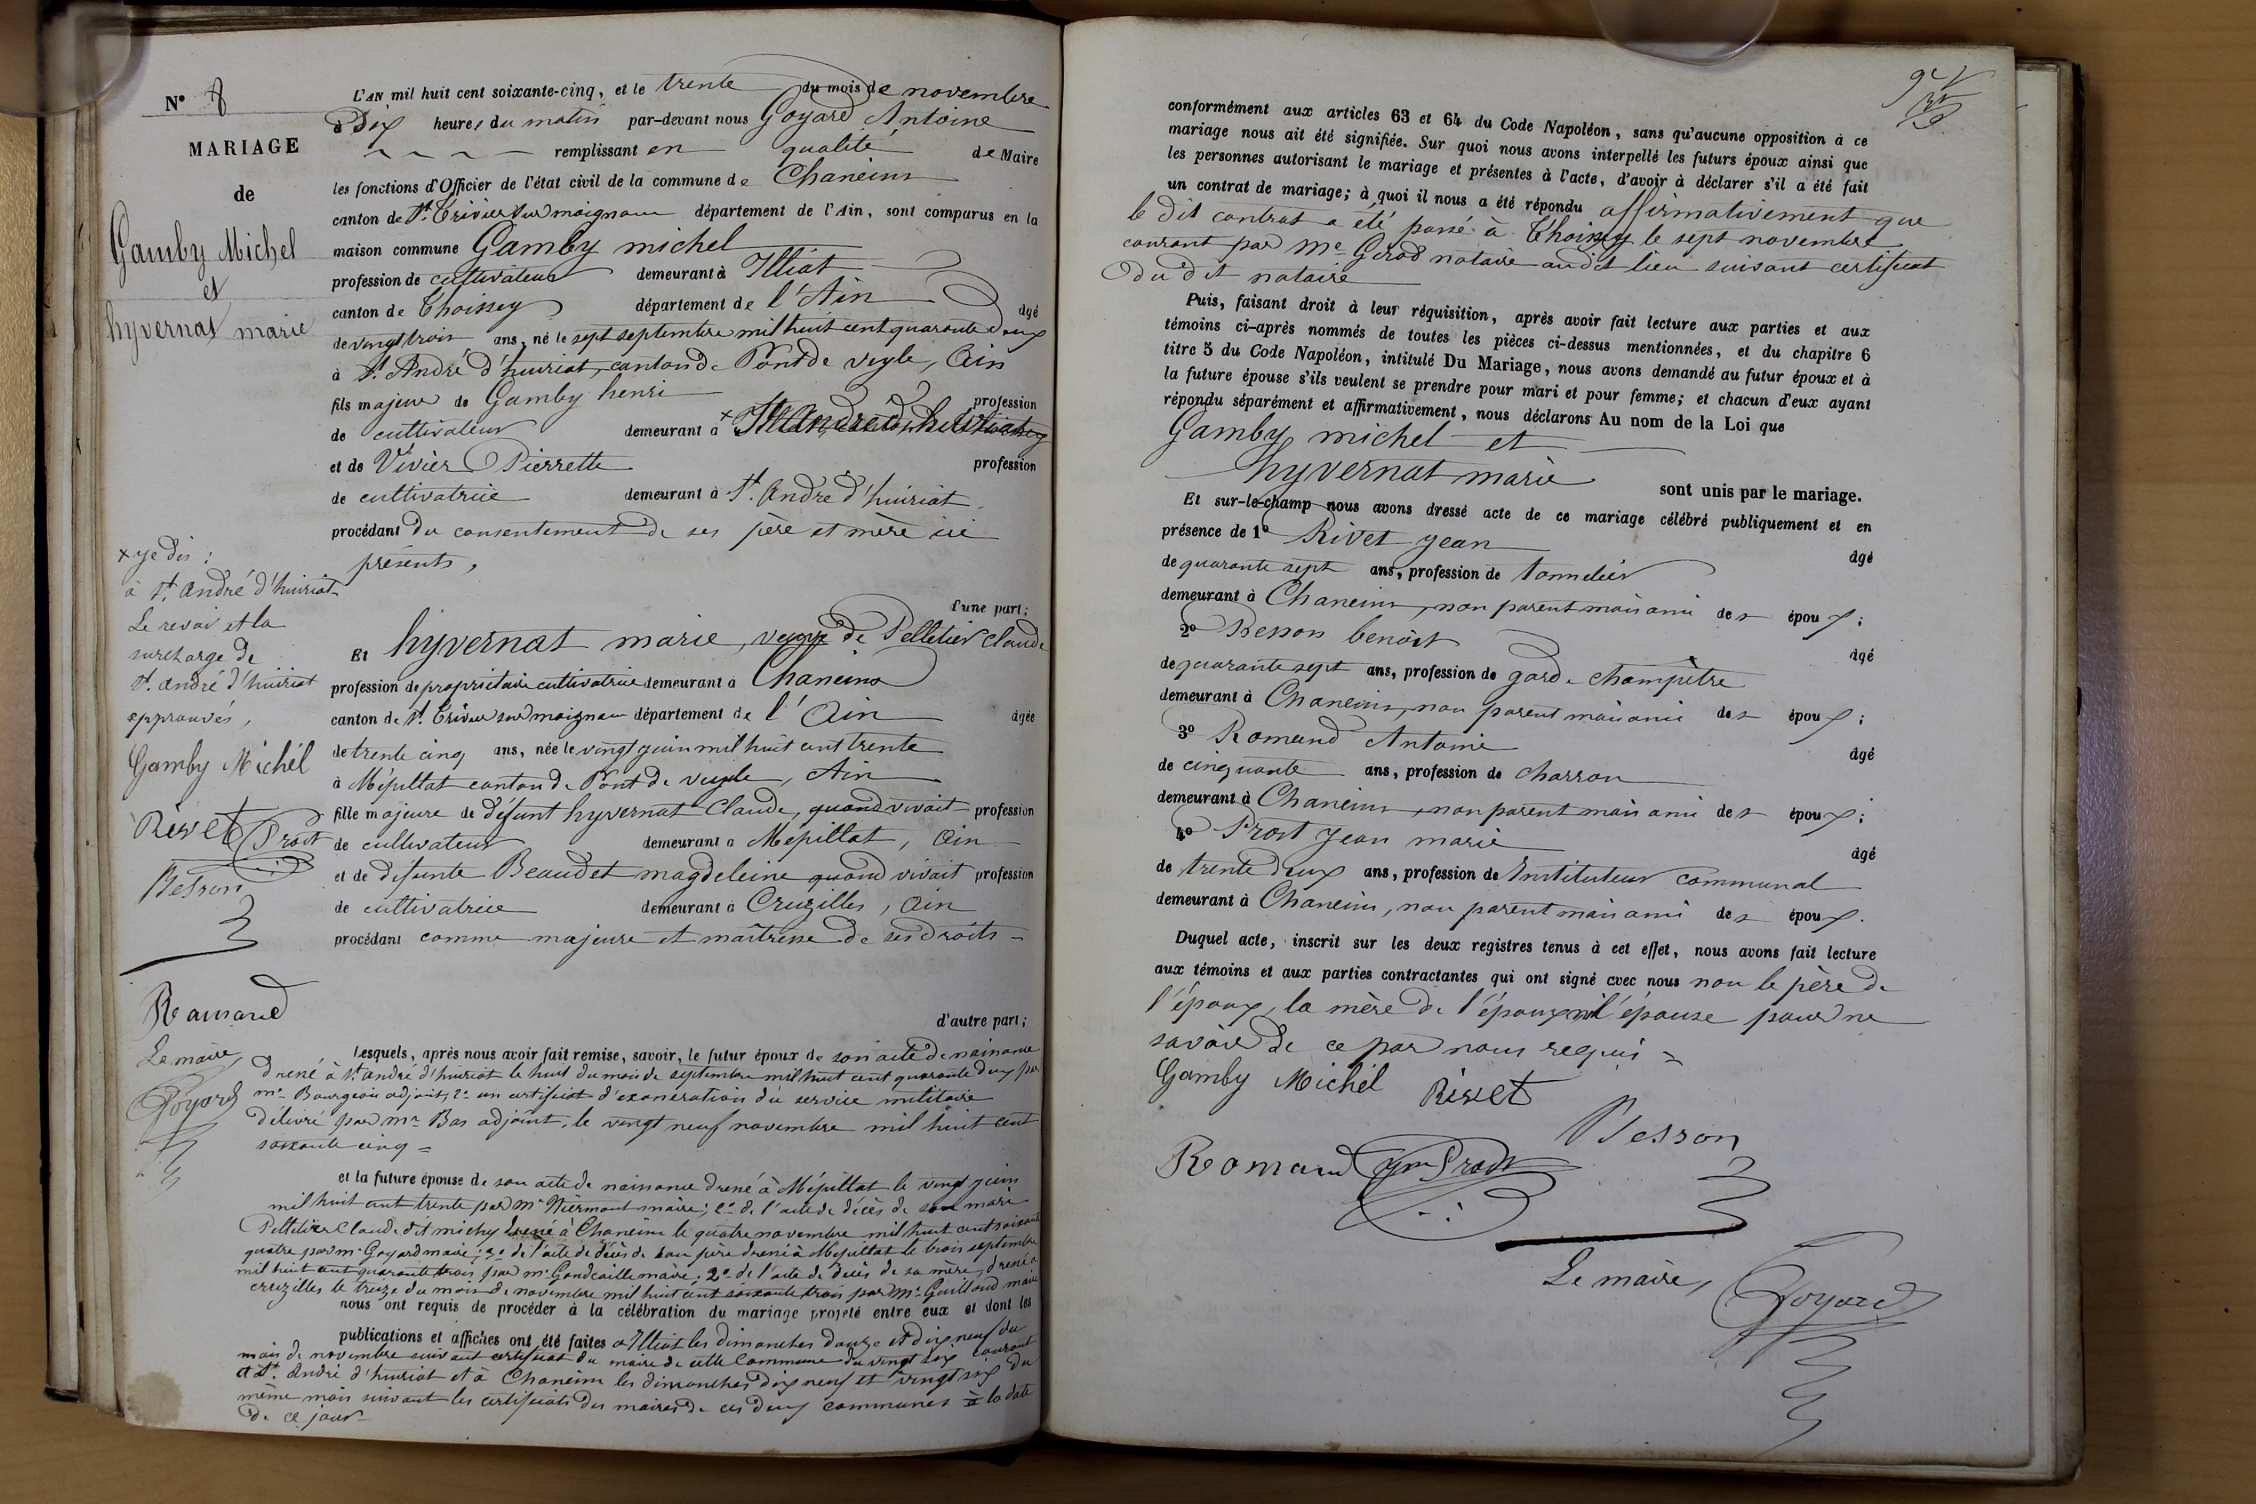 N° 8
MARIAGE
de
Gamby Michel
et
hyvernat marie
L'AN mil huit cent soixante-cinq, et le trente du mois de novembre
à Dix heures du matin par-devant nous Goyard Antoine
remplissant en qualité de Maire
les fonctions d'Officier de l'état civil de la commune de Chaneins
canton de St. Trivier sur moignans département de l'Ain, sont comparus en la
maison commune Gamby michel
profession de cultivateur demeurant à Illiat
canton de Thoissey département de l'Ain âgé
de vingt trois ans, né le sept septembre mil huit cent quarante deux
à St. André d'huiriat, canton de Pont de veyle, Ain
fils majeur de Gamby henri profession
de cultivateur demeurant à x
et de Vivier Pierrette profession
de cultivatrice demeurant à St. André d'huiriat
procédant du consentement de ses père et mère ici
présents,
x je dis :
à St. André d'huiriat
Le renvoi et la
surcharge de
St. André d'huiriat
approuvés,
Gamby Michel
Rivet Prost
Besson
Romand
Le maire,
Goyard
d'une part;
Et hyvernat marie, veuve de Pelletier Claude
profession de propriétaire cultivatrice demeurant à Chaneins
canton de St. Trivier sur moignans département de l'Ain âgée
de trente cinq ans, née le vingt juin mil huit cent trente
à Mépillat canton de Pont de veyle, Ain
fille majeure de défunt hyvernat Claude, quand vivait profession
de cultivateur demeurant à Mépillat, Ain
et de défunte Beaudet magdeleine quand vivait profession
de cultivatrice demeurant à Cruzilles, Ain
procédant comme majeure et maîtresse de ses droits
d'autre part;
Lesquels, après nous avoir fait remise, savoir, le futur époux de son acte de naissance
dressé à St. André d'huiriat le huit du mois de septembre mil huit cent quarante deux par
mr. Bourgeois adjoint, 2° un certificat d'exonération du service militaire
délivré par mr. Bas adjoint, le vingt neuf novembre mil huit cent
soixante cinq =
et la future épouse de son acte de naissance dressé à Mépillat le vingt juin
mil huit cent trente par mr. maire; 2° de l'acte de décès de son mari
Pelletier Claude dit michy dressé à Chaneins le quatre novembre mil huit cent soixante
quatre par mr. Goyard maire; 3° de l'acte de décès de son père dressé à Mépillat le trois septembre
mil huit cent quarante trois par mr. Gondcaille maire; 2° de l'acte de décès de sa mère, dressé à
cruzilles le treize du mois de novembre mil huit cent soixante trois par mr. Guilloud maire
nous ont requis de procéder à la célébration du mariage projeté entre eux et dont les
publications et affiches ont été faites à Illiat les dimanches douze et dix neuf du
mois de novembre suivant certificat du maire de cette commune du vingt six courant
et à St. André d'huiriat et à Chaneins les dimanches dix neuf et vingt six du
même mois suivant les certificats des maires de ces deux communes à la date
de ce jour
conformément aux articles 63 et 64 du Code Napoléon, sans qu'aucune opposition à ce
mariage nous ait été signifiée. Sur quoi nous avons interpellé les futurs époux ainsi que
les personnes autorisant le mariage et présentes à l'acte, d'avoir à déclarer s'il a été fait
un contrat de mariage; à quoi il nous a été répondu affirmativement que
le dit contrat a été passé à Thoissey le sept novembre
courant par Me. Girod notaire audit lieu suivant certificat
du dit notaire
Puis, faisant droit à leur réquisition, après avoir fait lecture aux parties et aux
témoins ci-après nommés de toutes les pièces ci-dessus mentionnées, et du chapitre 6
titre 5 du Code Napoléon, intitulé Du Mariage, nous avons demandé au futur époux et à
la future épouse s'ils veulent se prendre pour mari et pour femme; et chacun d'eux ayant
répondu séparément et affirmativement, nous déclarons Au nom de la Loi que
Gamby michel et
hyvernat marie
sont unis par le mariage.
Et sur-le-champ nous avons dressé acte de ce mariage célébré publiquement et en
présence de 1° Rivet jean âgé
de quarante sept ans, profession de tonnelier
demeurant à Chaneins, non parent mais ami des époux;
2° Besson benoît âgé
de quarante sept ans, profession de garde champêtre
demeurant à Chaneins, non parent mais ami des époux;
3° Romand Antoine âgé
de cinquante ans, profession de charron
demeurant à Chaneins, non parent mais ami des époux;
4° Prost jean marie âgé
de trente deux ans, profession de Instituteur communal
demeurant à Chaneins, non parent mais ami des époux.
Duquel acte, inscrit sur les deux registres tenus à cet effet, nous avons fait lecture
aux témoins et aux parties contractantes qui ont signé avec nous non le père de
l'époux, la mère de l'époux ni l'épouse pour ne
savoir de ce par nous requis =
Gamby Michel Rivet
Besson
Romand jm Prost
Le maire, Goyard